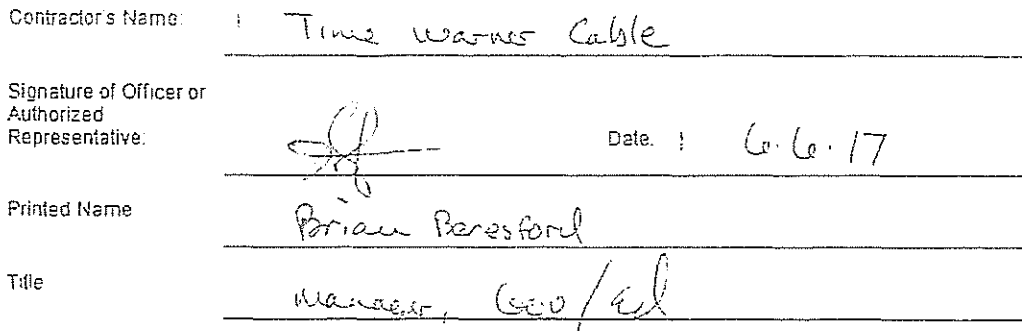 Contractor's Name: Time Warner Cable
Signature of Officer or
Authorized
Representative: Date. 6.6.17
Printed Name Brian Beresford
Title Manager, Gov/Ed